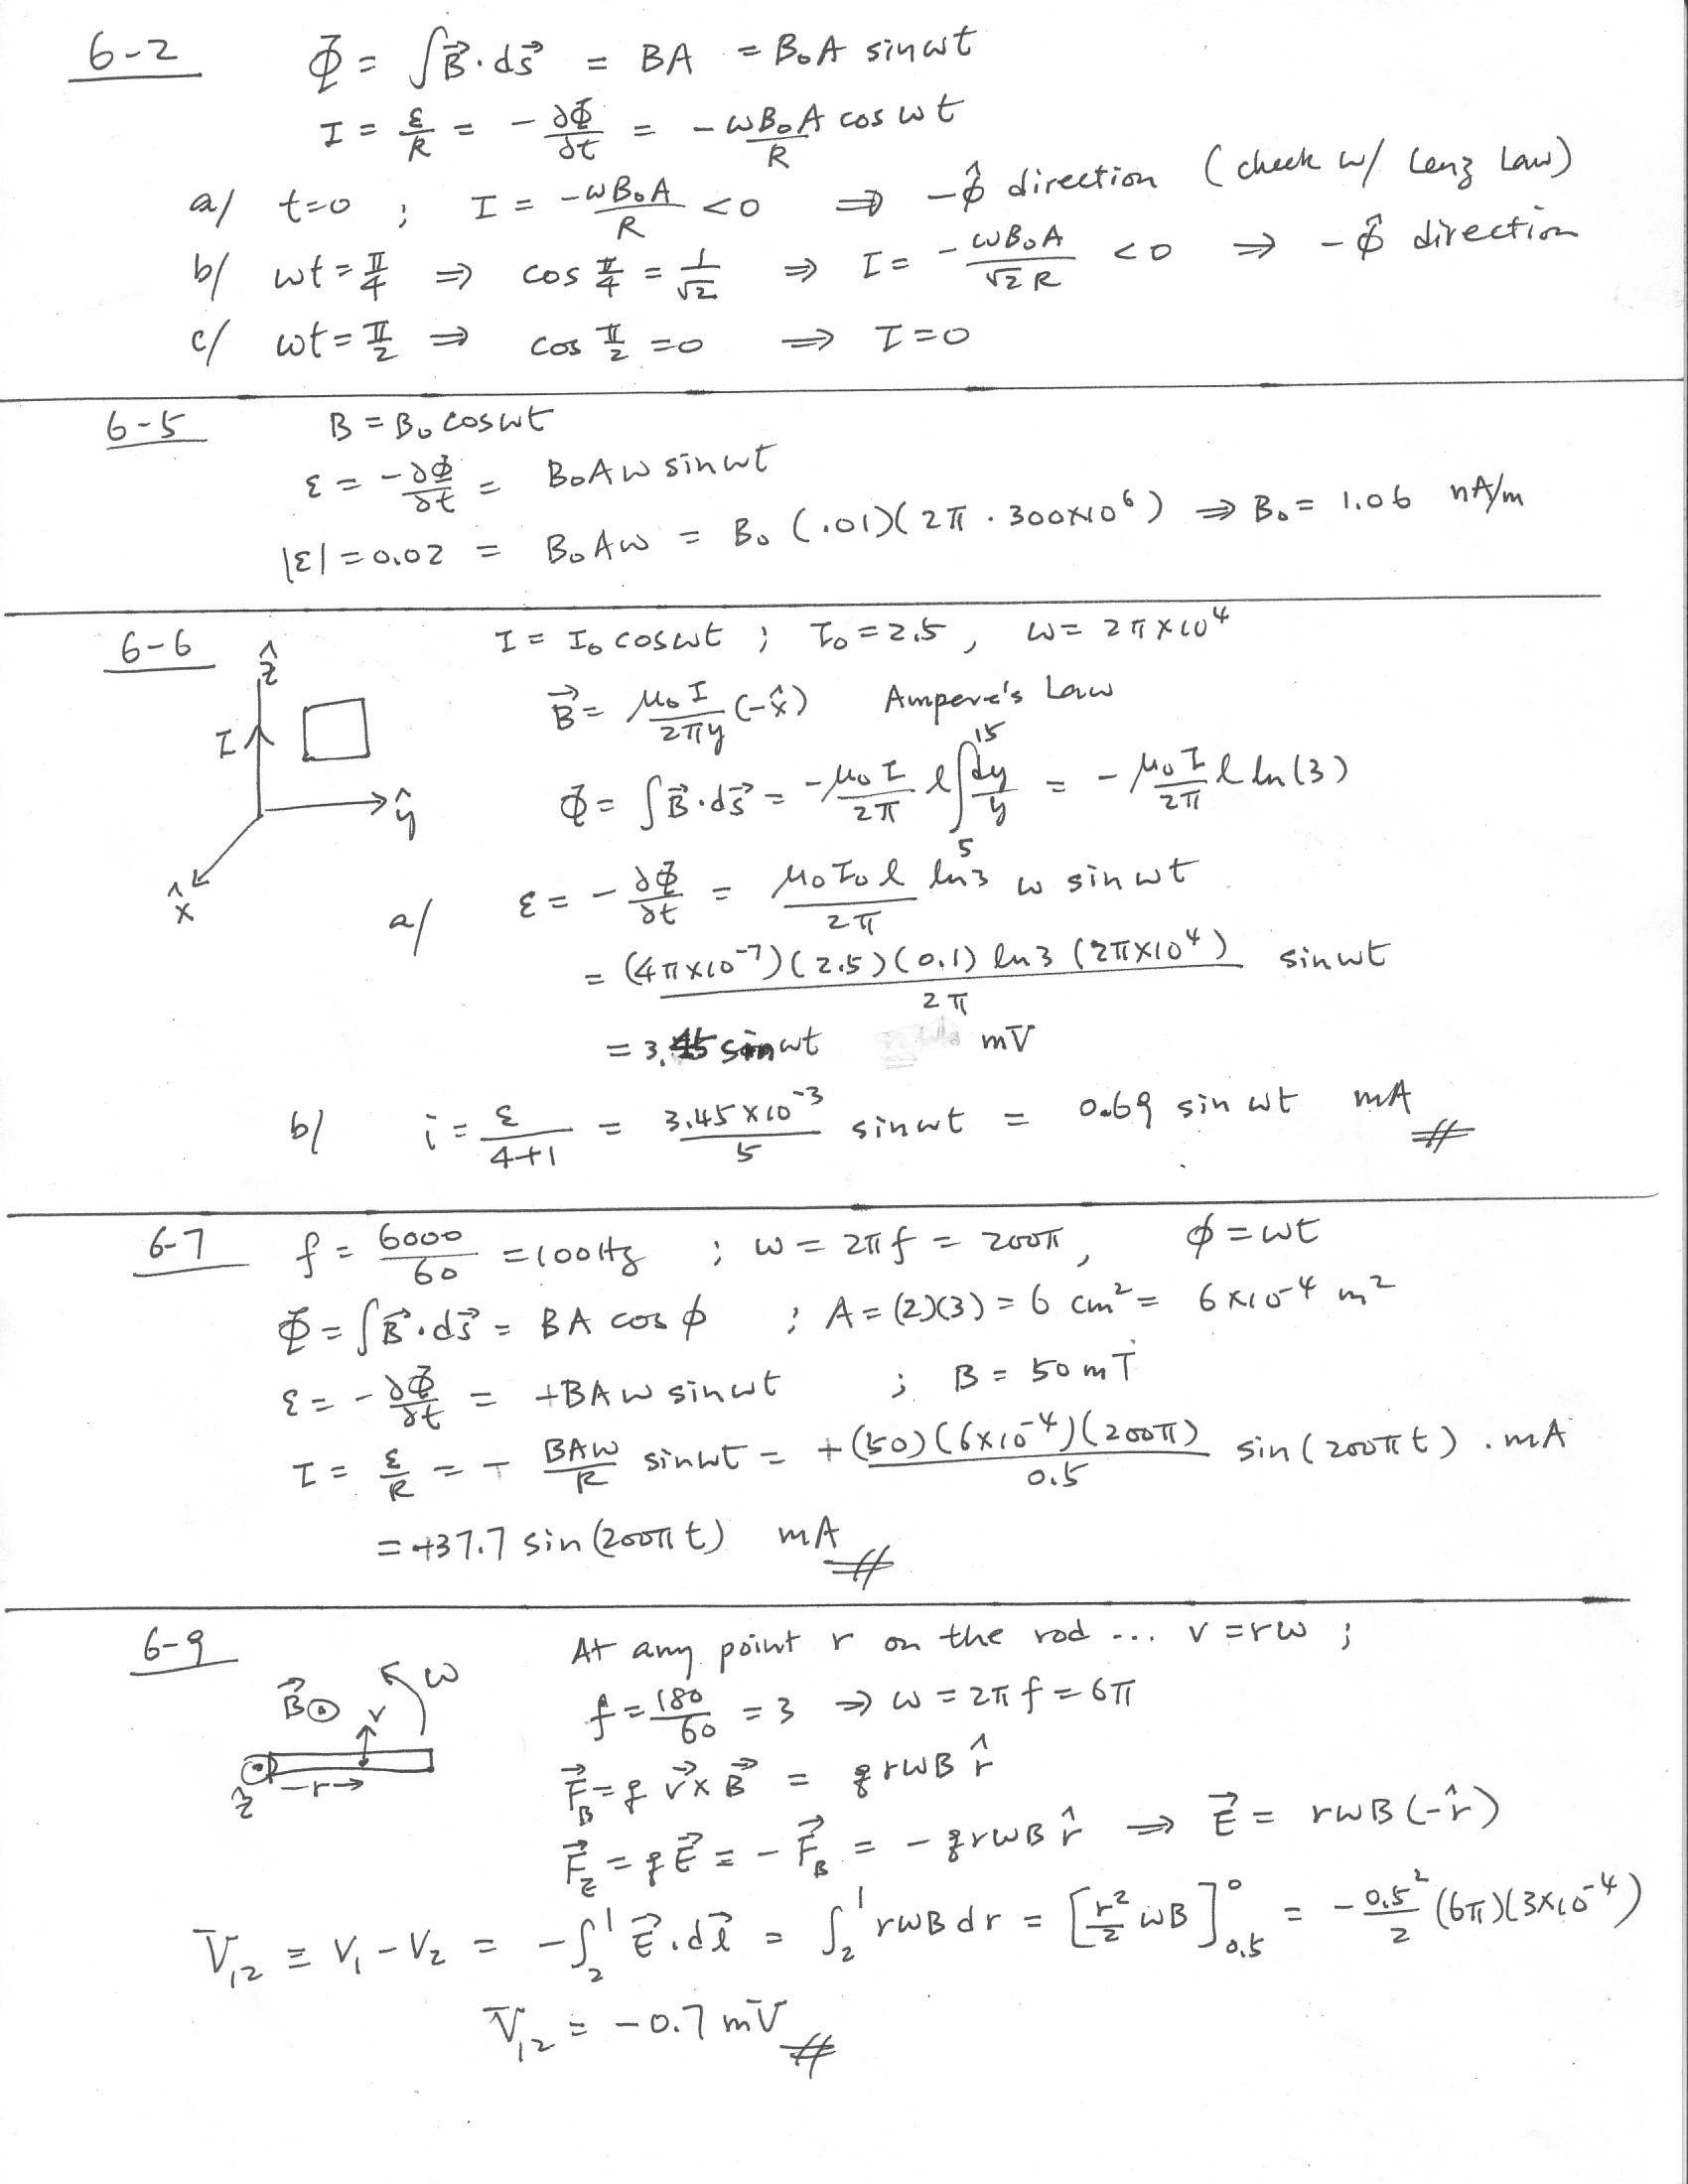 6-2 Φ = ∫B⃗·ds⃗ = BA = B₀A sinωt
I = ε/R = -∂Φ/∂t = -ωB₀A/R cos ωt
a/ t=0 ; I = -ωB₀A/R <0 ⇒ -φ̂ direction (check w/ Lenz Law)
b/ ωt = π/4 ⇒ cos π/4 = 1/√2 ⇒ I = -ωB₀A/√2 R <0 ⇒ -φ̂ direction
c/ ωt = π/2 ⇒ cos π/2 =0 ⇒ I=0
6-5 B = B₀ cosωt
ε = -∂Φ/∂t = B₀Aω sinωt
|ε| = 0.02 = B₀Aω = B₀ (.01)(2π · 300×10⁶) ⇒ B₀ = 1.06 nA/m
6-6 I = I₀ cosωt ; I₀ = 2.5 , ω = 2π×10⁴
ẑ
B⃗ = μ₀I/2πy (-x̂) Ampere's Law
I
Φ = ∫B⃗·ds⃗ = -μ₀I/2π l ∫₅¹⁵ dy/y = -μ₀I/2π l ln(3)
ŷ
x̂
a/ ε = -∂Φ/∂t = μ₀I₀l ln3/2π ω sinωt
= (4π×10⁻⁷)(2.5)(0.1) ln3 (2π×10⁴)/2π sinωt
= 3.45 sinωt mV
b/ i = ε/4+1 = 3.45×10⁻³/5 sinωt = 0.69 sin ωt mA
6-7 f = 6000/60 = 100Hz ; ω = 2πf = 200π, φ = ωt
Φ = ∫B⃗·ds⃗ = BA cos φ ; A = (2)(3) = 6 cm² = 6×10⁻⁴ m²
ε = -∂Φ/∂t = +BAω sinωt ; B = 50 mT
I = ε/R = + BAω/R sinωt = +(50)(6×10⁻⁴)(200π)/0.5 sin(200πt) . mA
= +37.7 sin(200πt) mA
6-9 At any point r on the rod ... v = rω ;
B⃗⊙ v ω
f = 180/60 = 3 ⇒ ω = 2πf = 6π
ẑ -r→
F⃗_B = q v⃗×B⃗ = qrωB r̂
F⃗_E = qE⃗ = -F⃗_B = -qrωB r̂ ⇒ E⃗ = rωB(-r̂)
V₁₂ ≡ V₁-V₂ = -∫₂¹ E⃗·dl⃗ = ∫₂¹ rωB dr = [r²/2 ωB]₀.₅⁰ = -0.5²/2 (6π)(3×10⁻⁴)
V₁₂ = -0.7 mV